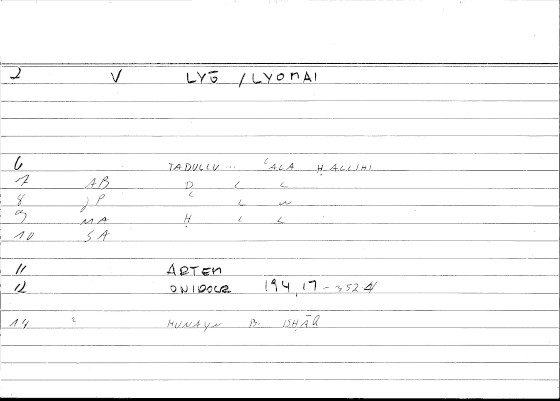 2 V LYŌ / LYOMAI
6 TADULLU ... ʿALA ḤALLIHI
7 AB D L L
8 JP L W
9 MA Ḥ L L
10 SA
11 ARTEM
12 ONIROCR 194,17 - 352.4
14 2 ḤUNAYN B. ISḤĀQ